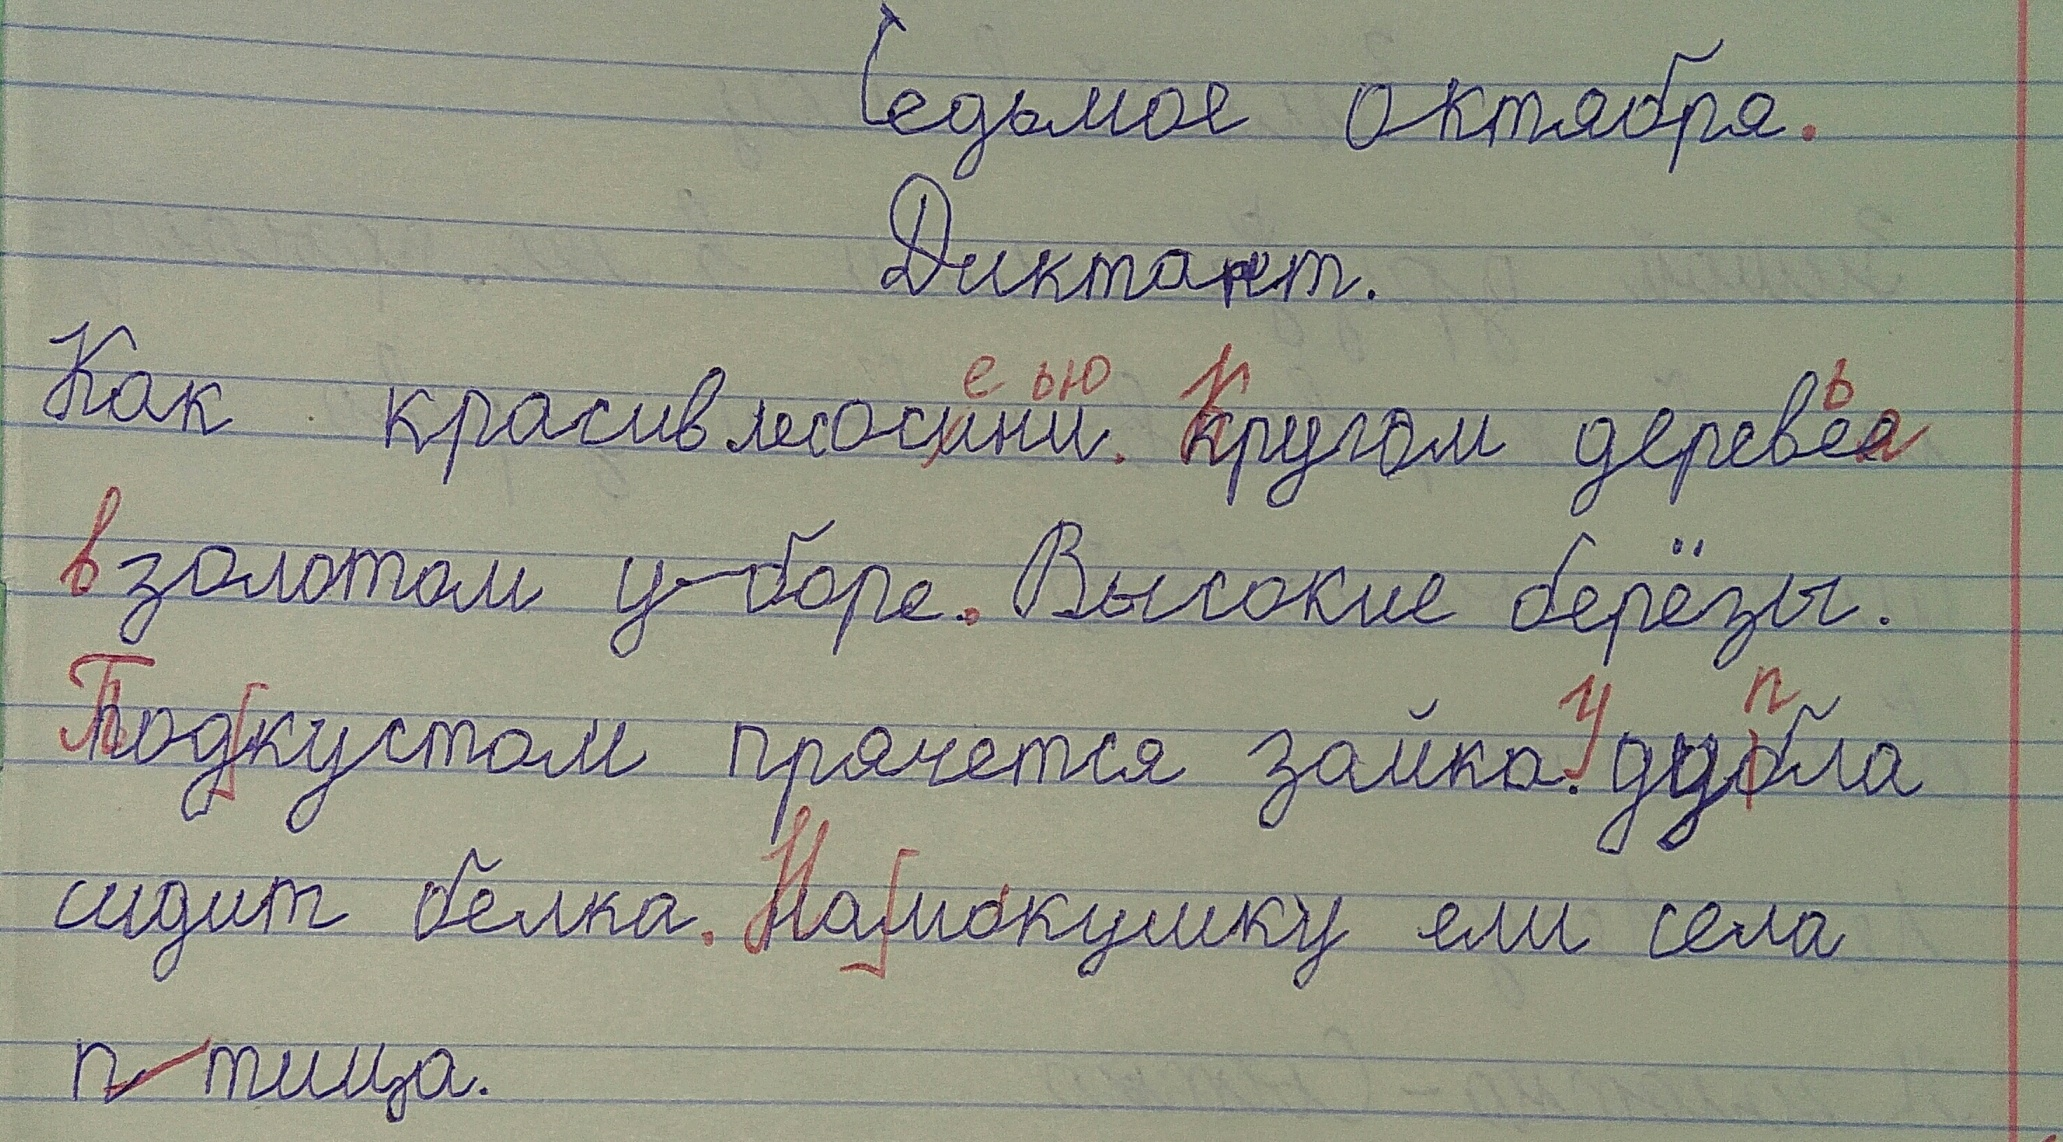 Седьмое октября.
Диктант.
е ью К
Как красив лесосини. кругом деревея
ь
в золотом у боре. Высокие берёзы.
Подкустом прячется зайка. У п
сидит белка. Намокушку ели села
птица.